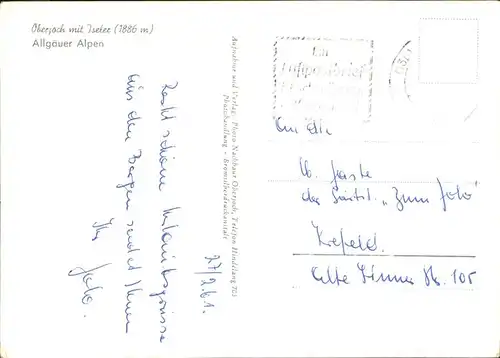 Oberjoch mit Iseler (1886 m)
Allgäuer Alpen
Recht schöne Urlaubsgrüsse
aus den Bergen sendet Ihnen
Ihr Jolo.
27/2.61.
Aufnahme und Verlag: Photo Naßhaur Oberjoch, Telefon Hindelang 703
Photohandlung - Bromsilberdruckanstalt
Ein
Luftpostbrief
An die
lb. Gäste
der Gastst. „Zum Jolo"
Krefeld.
Alte Linner Str. 105